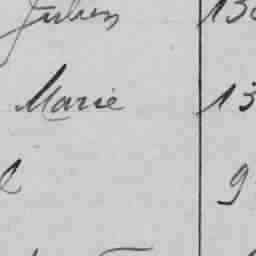 Julien 130
Marie 13
9